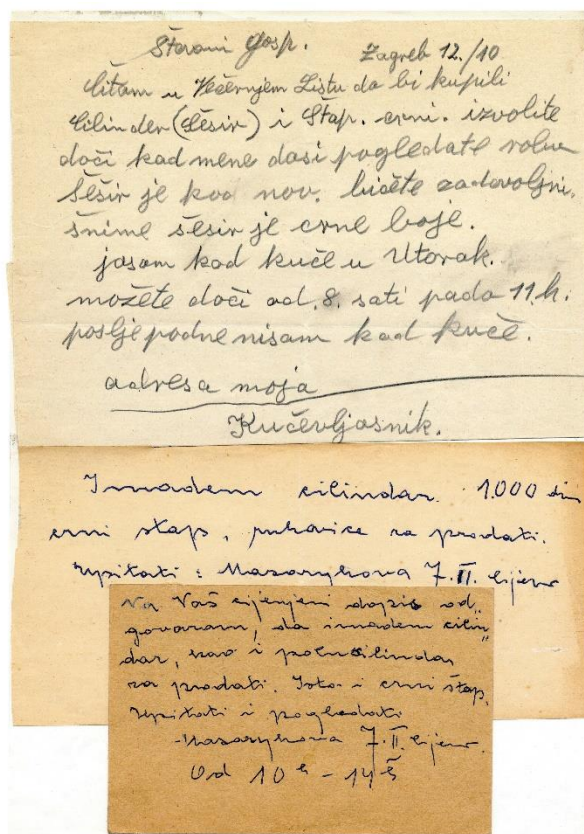 Štovani gosp. Zagreb 12./10
Čitam u Večernjem Listu da bi kupili
Cilinder (Šešir) i Štap. crni. izvolite
doči kod mene dasi pogledate robu
šešir je kod nov. bičete zadovoljni.
šnime šešir je crne boje.
jasam kod kuče u Utorak.
možete doči od. 8. sati pado 11 h.
poslje podne nisam kod kuče.
adresa moja
Kučevljasnik.
Imadem cilindar 1.000 din
crni štap, rukavice za prodati.
Upitati : Masarykova 7. II. lijevo
Na Vaš cijenjeni dopis od„
govaram, da imadem cilin„
dar, kao i polucilindar
za prodati. Isto i crni štap.
Upitati i pogledati
-Masarykova 7. II. lijevo.
Od 10 h - 14 h